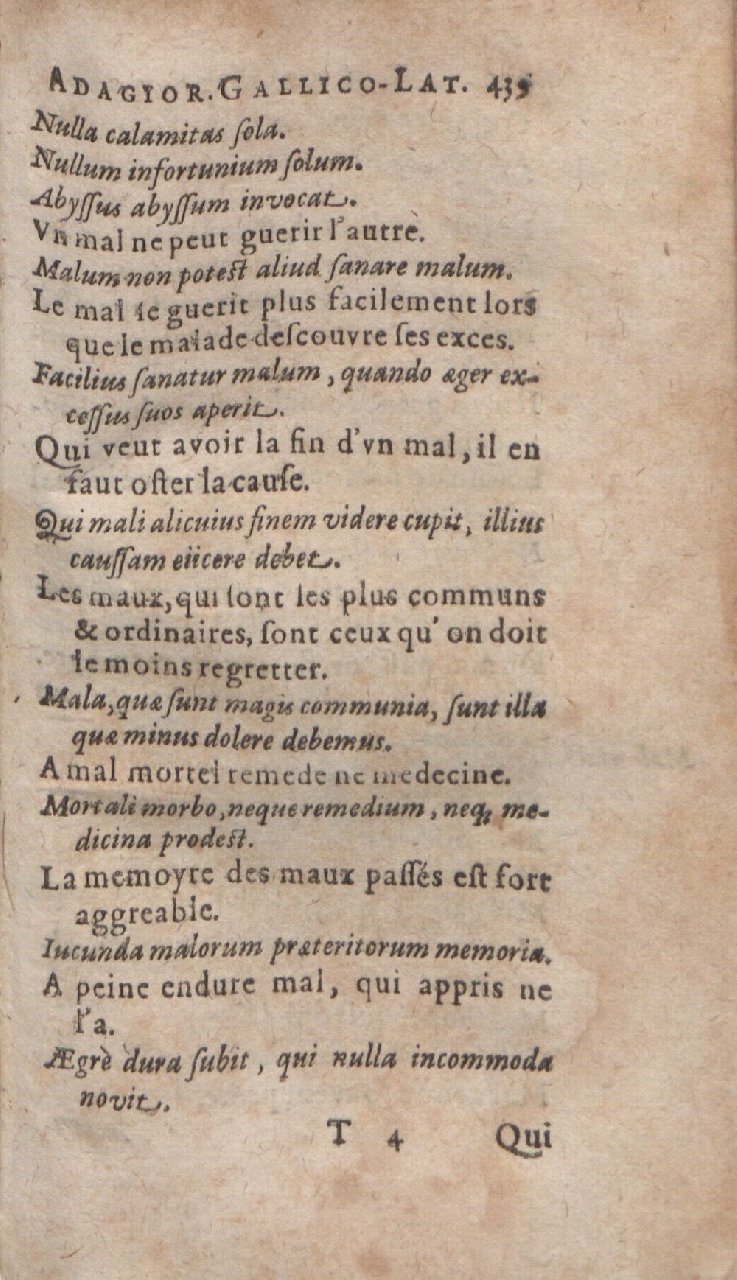 ADAGIOR. GALLICO-LAT. 439
Nulla calamitas ſola.
Nullum infortunium ſolum.
Abyſſus abyſſum invocat.
Vn mal ne peut guerir l'autre.
Malum non poteſt aliud ſanare malum.
Le mal ſe guerit plus facilement lors
que le malade deſcouvre ſes exces.
Facilius ſanatur malum, quando æger ex-
ceſſus ſuos aperit.
Qui veut avoir la fin d'vn mal, il en
faut oſter la cauſe.
Qui mali alicuius finem videre cupit, illius
cauſſam eiicere debet.
Les maux, qui ſont les plus communs
& ordinaires, ſont ceux qu' on doit
le moins regretter.
Mala, quæ ſunt magis communia, ſunt illa
quæ minus dolere debemus.
A mal mortel remede ne medecine.
Mortali morbo, neque remedium, neq; me-
dicina prodeſt.
La memoyre des maux paſſés eſt fort
aggreable.
Iucunda malorum præteritorum memoria.
A peine endure mal, qui appris ne
l'a.
Ægrè dura ſubit, qui nulla incommoda
novit.
T 4 Qui